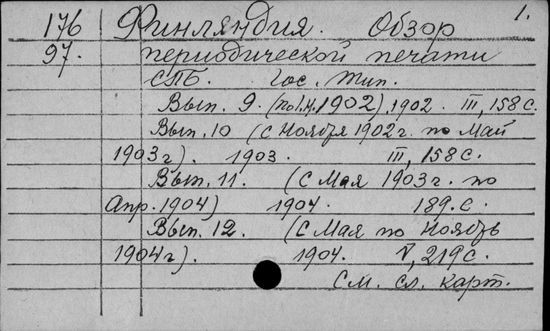 1.
176 Финляндия. Обзор
97. периодической печати
СПБ. Гос. Тип.
Вып. 9. (по 1.XI.1902). 1902. III, 158 с.
Вып. 10 (с Ноября 1902 г. по Май
1903 г). 1903. III, 158 с.
Вып. 11. (с Мая 1903 г. по
Апр. 1904) 1904. 189. с.
Вып. 12. (с Мая по Ноябрь
1904 г). 1904. V, 219 с.
См. сл. карт.